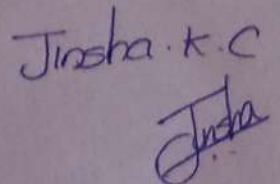 Jinsha. K. C
Jinsha